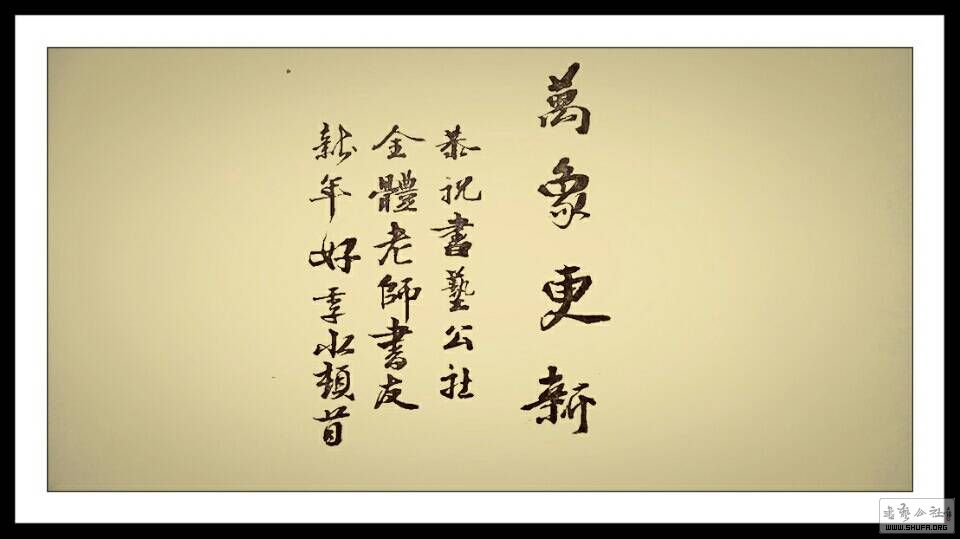 萬象更新
恭祝書藝公社
全體老師書友
新年好季水頓首
书艺公社
WWW.SHUFA.ORG